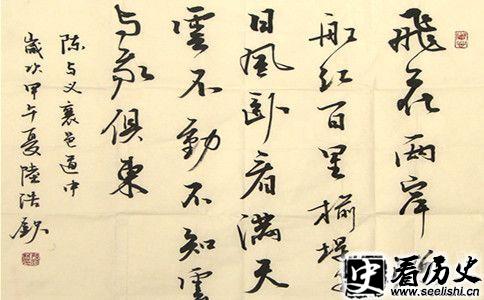 飛花兩岸
船紅百里榆堤
日風卧看滿天
雲不動不知雲
与我俱東
陈与义襄邑道中
歲次甲午夏陸浩
史 看历史
www.seelishi.cn